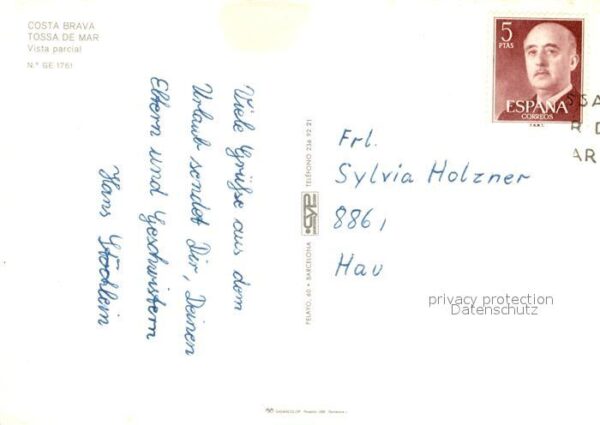 COSTA BRAVA
TOSSA DE MAR
Vista parcial
N.° GE 1761
5
PTAS
ESPAÑA
CORREOS
Viele Grüße aus dem
Urlaub sendet Dir, Deinen
Eltern und Geschwistern
Hans
PELAYO, 60 • BARCELONA
TELÉFONO 236 92 21
Frl.
Sylvia Holzner
8861
Hau
privacy protection
Datenschutz